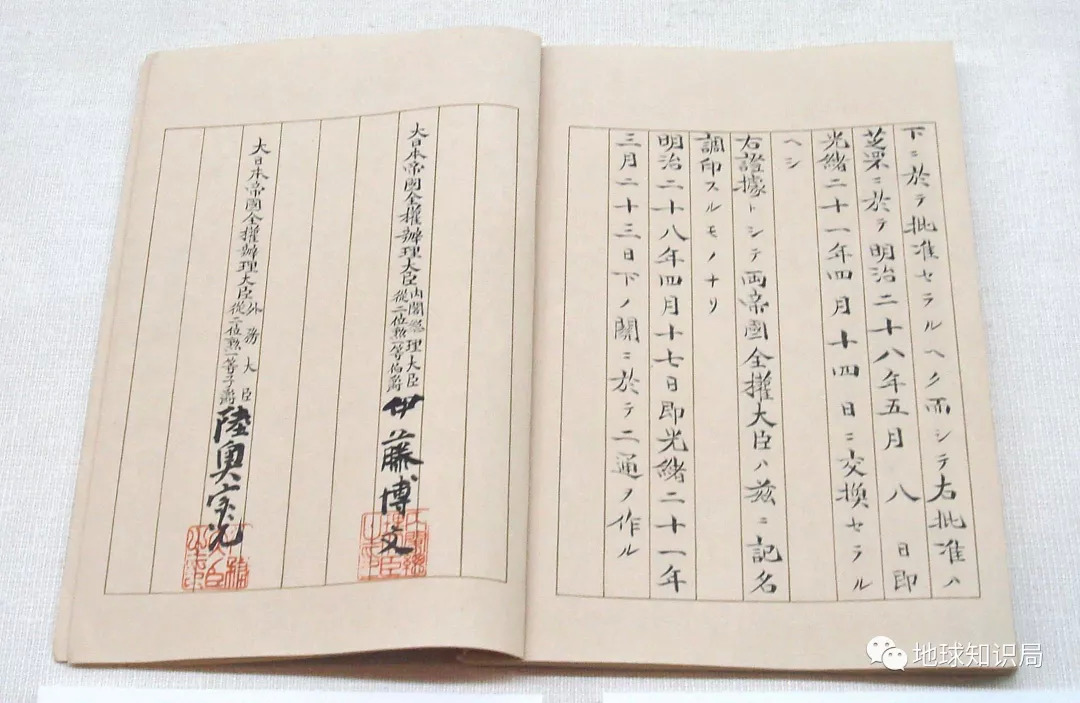 下ニ於テ批准セラルヘク而シテ右批准ハ
芝罘ニ於テ明治二十八年五月八日即
光緒二十一年四月十四日ニ交換セラル
ヘシ
右證據トシテ両帝國全權大臣ハ茲ニ記名
調印スルモノナリ
明治二十八年四月十七日即光緒二十一年
三月二十三日下ノ關ニ於テ二通ヲ作ル
大日本帝國全權辦理大臣内閣總理大臣從二位勲一等伯爵伊藤博文
大日本帝國全權辦理大臣外務大臣從二位勲一等子爵陸奥宗光
地球知识局